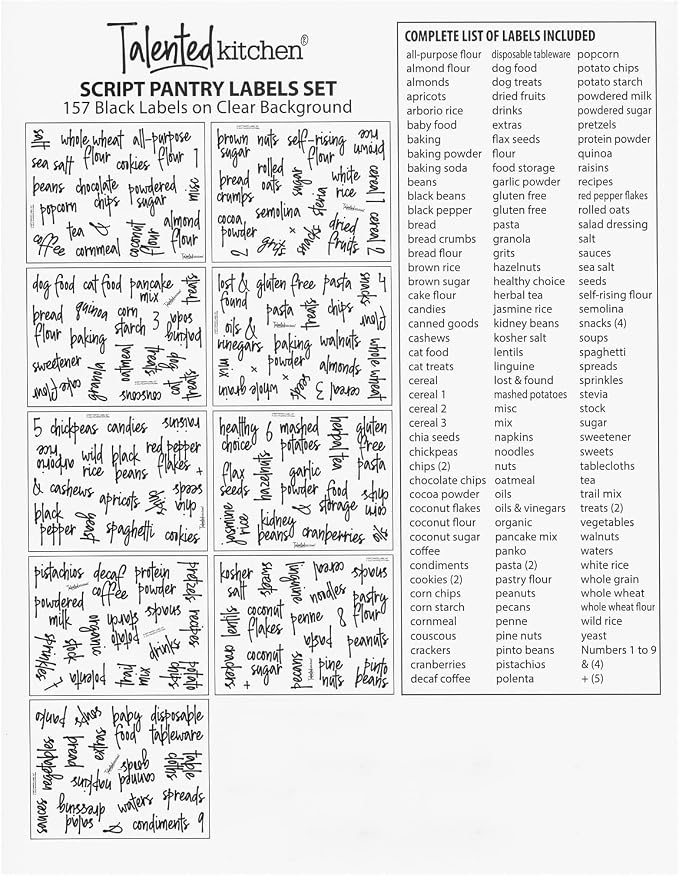 Talentedkitchen®
SCRIPT PANTRY LABELS SET
157 Black Labels on Clear Background
salt whole wheat flour all-purpose flour 1
sea salt cookies
beans chocolate chips powdered sugar misc
popcorn
coffee tea & cornmeal coconut flour almond flour
brown sugar nuts self-rising flour brown rice
bread crumbs rolled oats sugar white rice cereal 1
cocoa powder semolina stevia cereal 2
2 grits + snacks dried fruits
dog food cat food pancake mix treats
bread flour quinoa corn starch 3 baking soda
baking
sweetener granola oatmeal treats dog
cake flour couscous cat treats
lost & found gluten free pasta snacks 4
pasta treats chips flour
oils & vinegars baking powder walnuts whole wheat
mix + whole grain + seeds almonds 3 cereal
5 chickpeas candies raisins
arborio rice wild rice black beans red pepper flakes +
& cashews apricots drinks chia seeds
black pepper yeast spaghetti cookies
healthy choice 6 mashed potatoes herbal tea gluten free
flax seeds hazelnuts garlic powder pasta
jasmine rice food & storage corn chips
kidney beans cranberries
pistachios decaf coffee protein powder pretzels recipes
powdered milk potato starch snacks
sprinkles stock organic drinks
7 polenta trail mix potato chips
kosher salt sweets linguine cereal snacks
lentils coconut flakes penne noodles 8 pastry flour
crackers coconut sugar pasta peanuts
pecans pine nuts pinto beans
panko baby food disposable tableware
vegetables bread extras table cloths
sauces napkins canned goods
salad dressing & waters spreads condiments 9
COMPLETE LIST OF LABELS INCLUDED
all-purpose flour disposable tableware popcorn
almond flour dog food potato chips
almonds dog treats potato starch
apricots dried fruits powdered milk
arborio rice drinks powdered sugar
baby food extras pretzels
baking flax seeds protein powder
baking powder flour quinoa
baking soda food storage raisins
beans garlic powder recipes
black beans gluten free red pepper flakes
black pepper gluten free rolled oats
bread pasta salad dressing
bread crumbs granola salt
bread flour grits sauces
brown rice hazelnuts sea salt
brown sugar healthy choice seeds
cake flour herbal tea self-rising flour
candies jasmine rice semolina
canned goods kidney beans snacks (4)
cashews kosher salt soups
cat food lentils spaghetti
cat treats linguine spreads
cereal lost & found sprinkles
cereal 1 mashed potatoes stevia
cereal 2 misc stock
cereal 3 mix sugar
chia seeds napkins sweetener
chickpeas noodles sweets
chips (2) nuts tablecloths
chocolate chips oatmeal tea
cocoa powder oils trail mix
coconut flakes oils & vinegars treats (2)
coconut flour organic vegetables
coconut sugar pancake mix walnuts
coffee panko waters
condiments pasta (2) white rice
cookies (2) pastry flour whole grain
corn chips peanuts whole wheat
corn starch pecans whole wheat flour
cornmeal penne wild rice
couscous pine nuts yeast
crackers pinto beans Numbers 1 to 9
cranberries pistachios & (4)
decaf coffee polenta + (5)